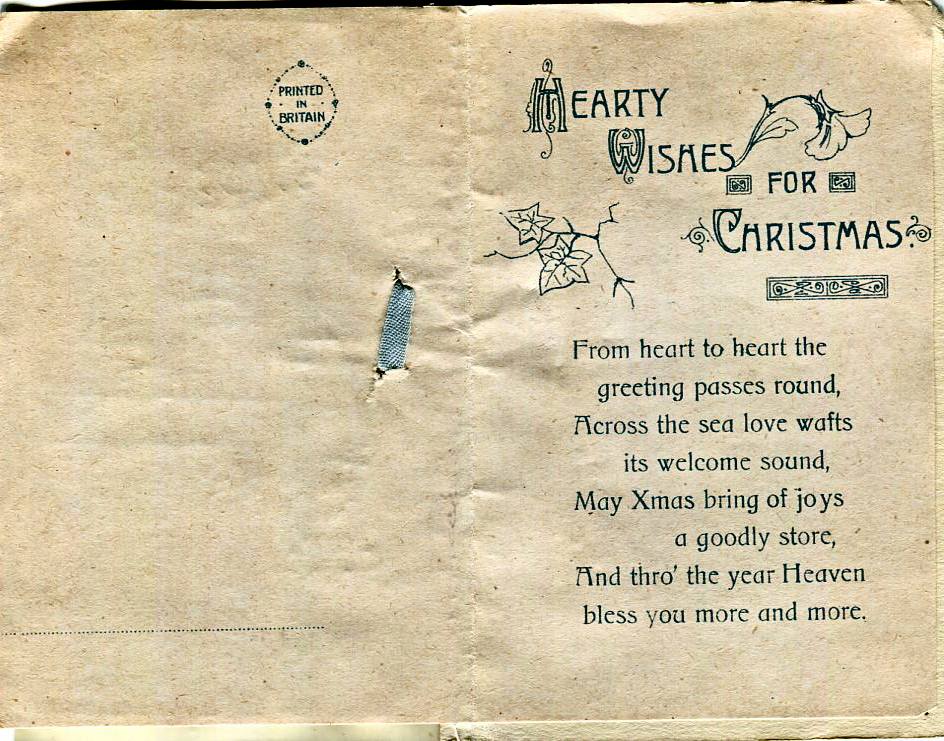 PRINTED
IN
BRITAIN
HEARTY
WISHES
FOR
CHRISTMAS.
From heart to heart the
greeting passes round,
Across the sea love wafts
its welcome sound,
May Xmas bring of joys
a goodly store,
And thro' the year Heaven
bless you more and more.